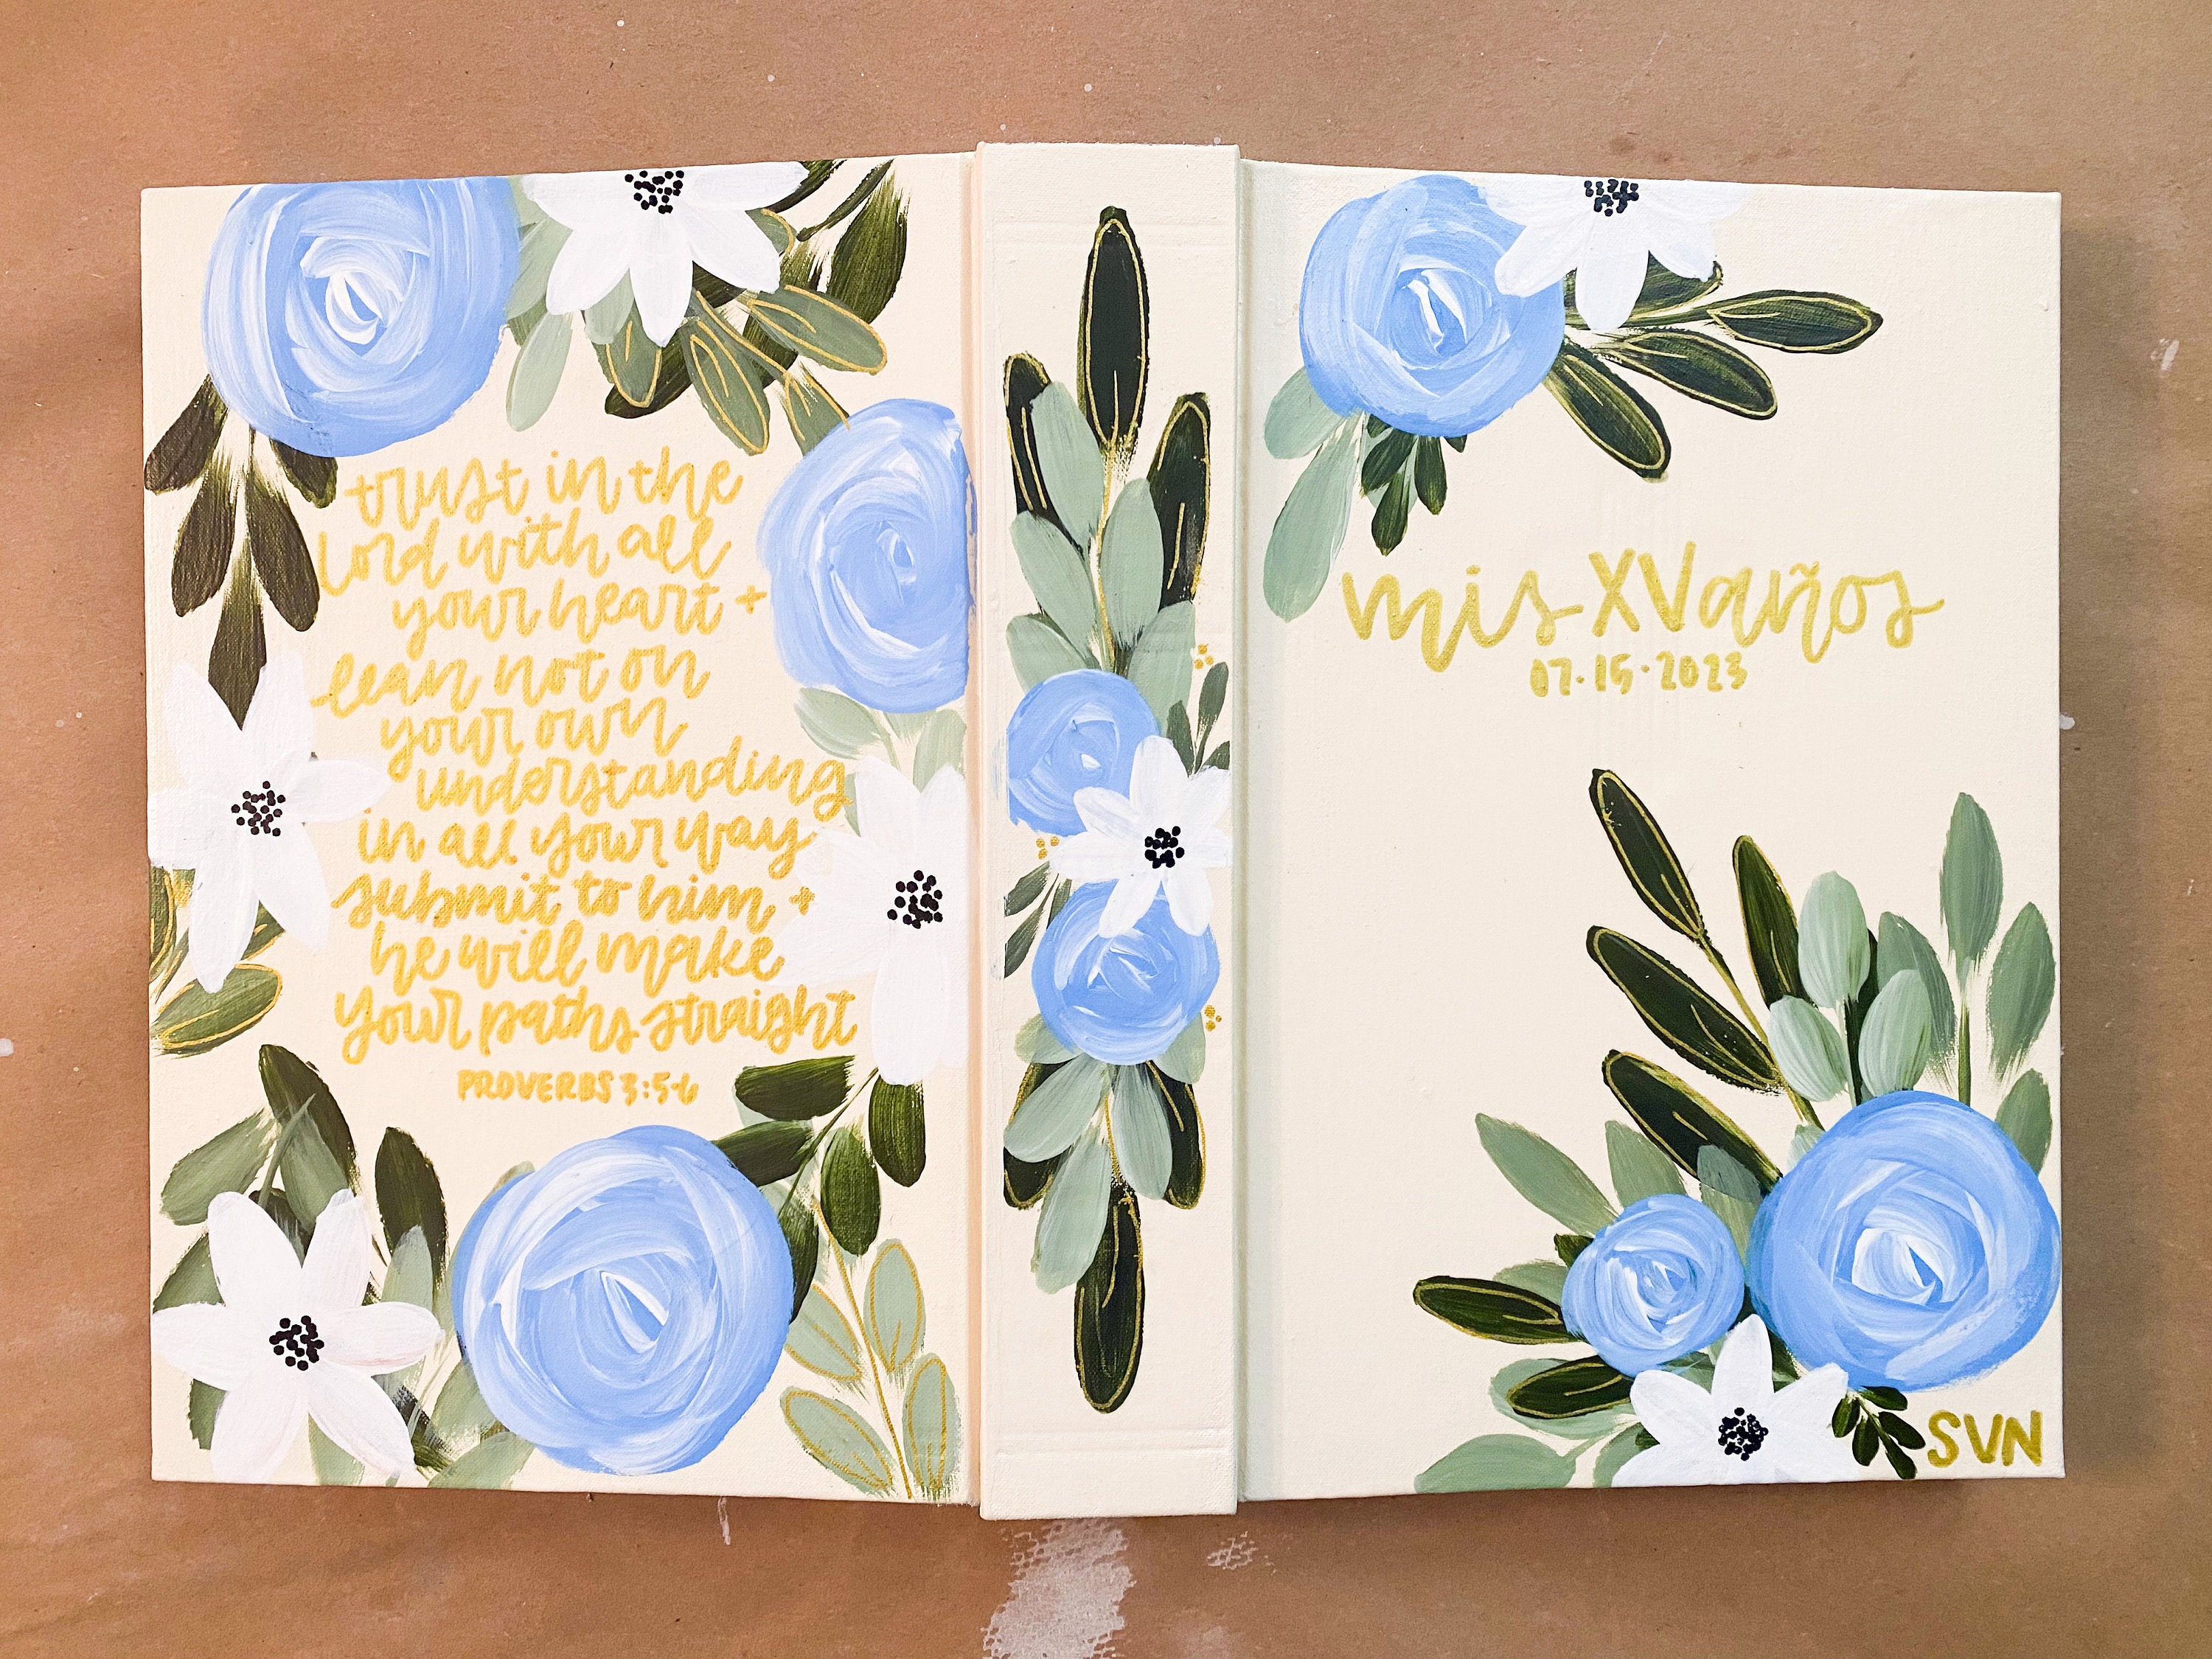 trust in the
lord with all
your heart +
lean not on
your own
understanding
in all your way
submit to him +
he will make
your paths straight
PROVERBS 3:5-6
mis XV años
07.15.2023
SVN